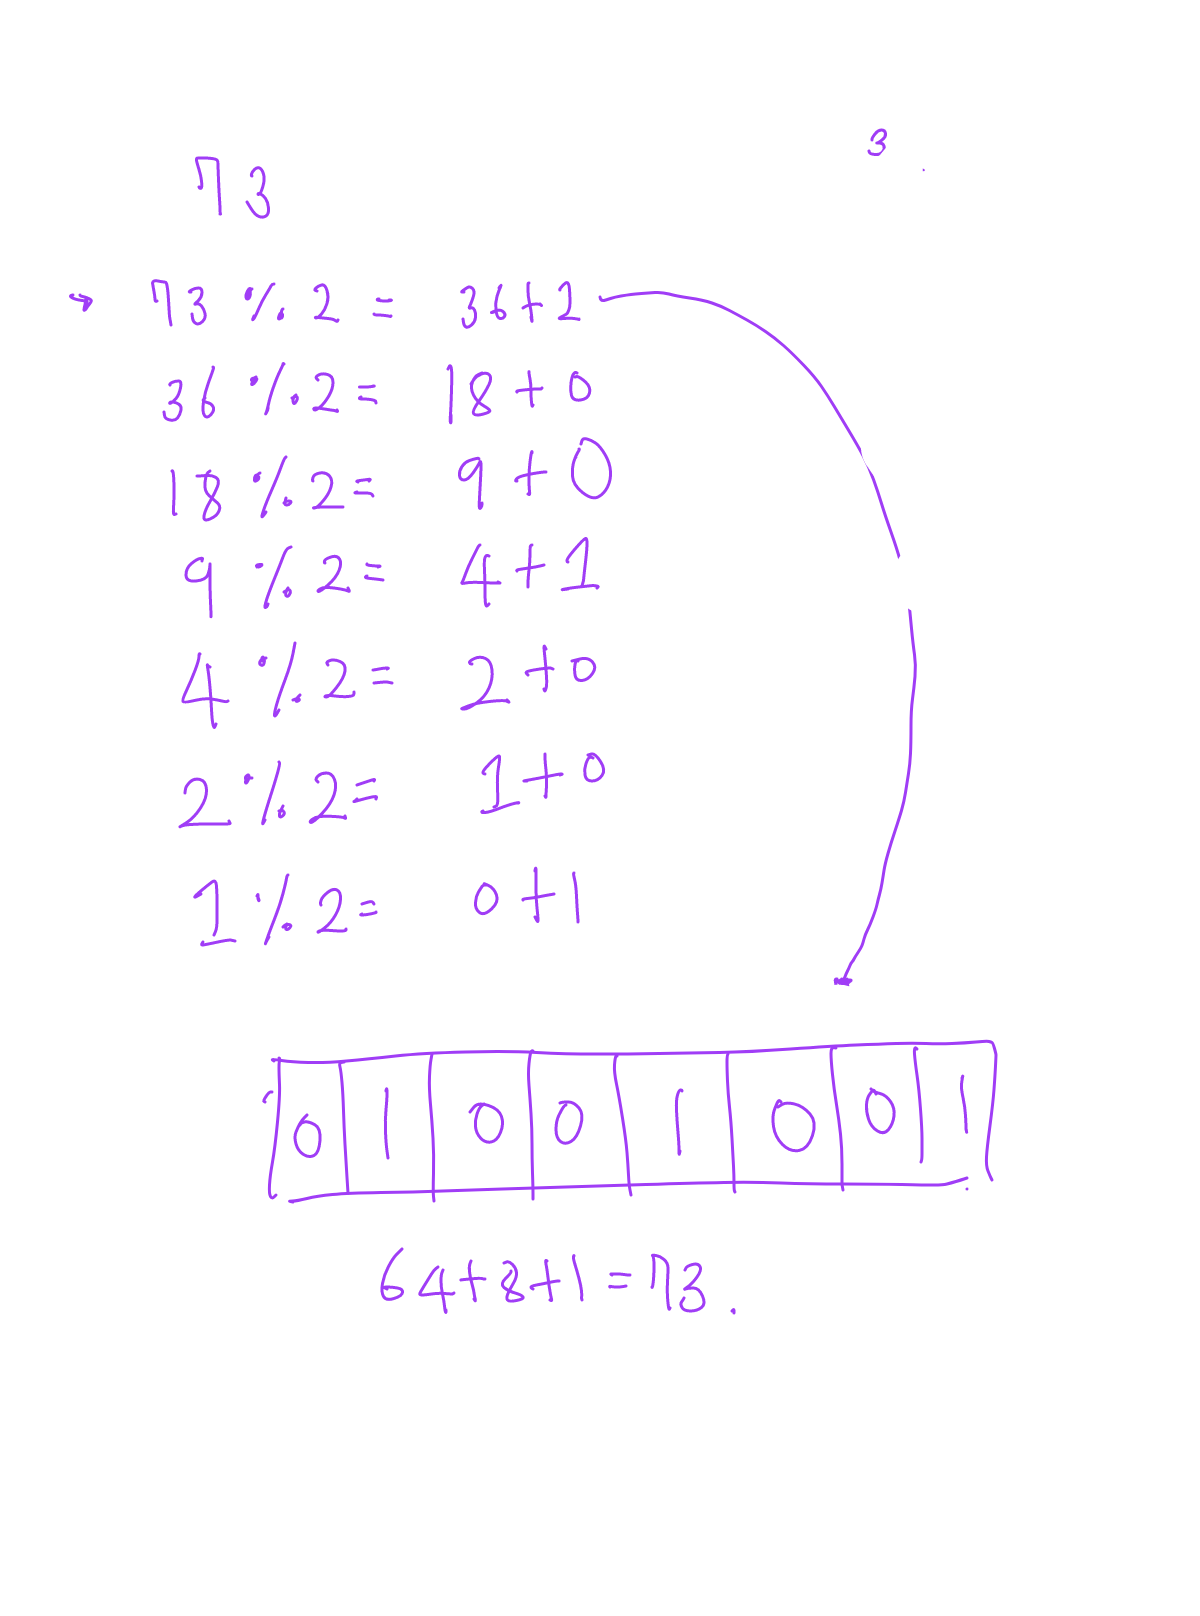 3
73
73 % 2 = 36+1
36 % 2 = 18+0
18 % 2 = 9+0
9 % 2 = 4+1
4 % 2 = 2+0
2 % 2 = 1+0
1 % 2 = 0+1
0 1 0 0 1 0 0 1
64+8+1=73.